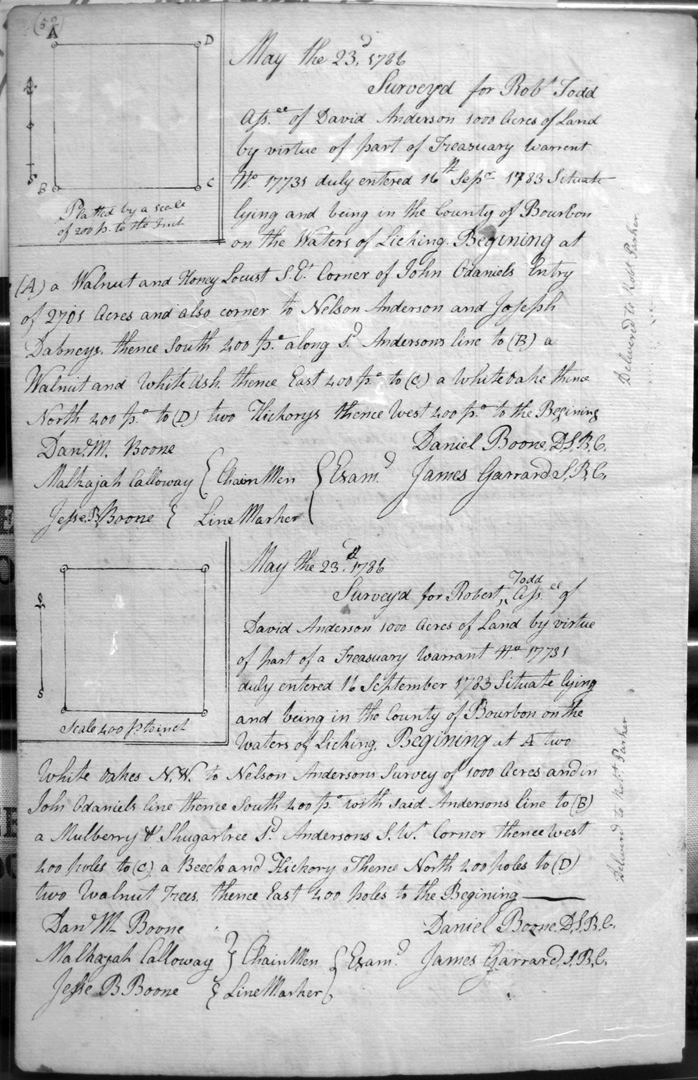 (52
A
D
B
C
Platted by a scale
of 200 p. to the Inch
May the 23d, 1786
Survey'd for Robt Todd
Assee of David Anderson 1000 Acres of Land
by virtue of part of Treasuary Warrent
No 17731 duly entered 16th Sepr 1783 Situate
lying and being in the County of Bourbon
on the Waters of Licking. Begining at
(A) a Walnut and Honey Locust S.Et Corner of John Odaniels Entry
of 2705 Acres and also corner to Nelson Anderson and Joseph
Dabneys. thence South 400 po along Sd Andersons line to (B) a
Walnut and White Ash thence East 400 po to (C) a White oake thence
North 400 po to (D) two Hickorys thence West 400 po to the Begining
Danl M. Boone
Daniel Boone, D.S.B.C.
Malhajah Calloway { Chain Men { Exam.d James Garrard S.B.C.
Jesse B Boone } Line Marker
Deliverd to Robt Parker
May the 23d 1786
Survey'd for Robert Todd Assee of
David Anderson 1000 Acres of Land by virtue
of part of a Treasuary Warrant No 17731
duly entered 16 September 1783 Situate lying
and being in the County of Bourbon on the
Waters of Licking. Begining at A two
Scale 400 p to inct
White Oakes N.W. to Nelson Andersons Survey of 1000 Acres and in
John Odaniels line thence South 400 po with said Andersons line to (B)
a Mulberry & Shugartree Sd Andersons S.Wt Corner thence West
400 poles to (C) a Beech and Hickory Thence North 400 poles to (D)
two Walnut Trees. thence East 400 poles to the Begining
Danl M Boone
Daniel Boone, D.S.B.C.
Malhajah Calloway } Chain Men { Exam.d James Garrard, S.B.C.
Jesse B Boone } Line Marker
Deliverd to Robt Parker